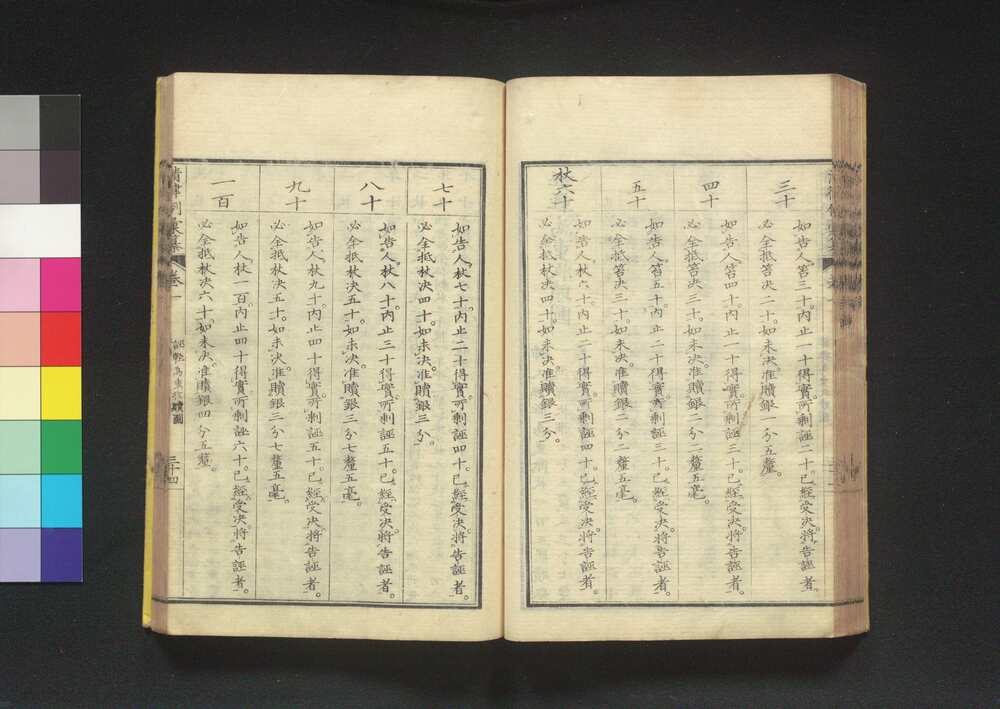 三十
如告人笞三十。內止一十得實。所剩誣二十。已經受决。將告誣者。
必全抵笞决二十。如未决。准贖銀一分五釐。
四十
如告人笞四十。內止一十得實。所剩誣三十。已經受决。將告誣者。
必全抵笞决三十。如未决。准贖銀二分二釐五毫。
五十
如告人笞五十。內止二十得實。所剩誣三十。已經受决。將告誣者。
必全抵笞决三十。如未决。准贖銀二分二釐五毫。
杖六十
如告人杖六十。內止二十得實。所剩誣四十。已經受决。將告誣者。
必全抵杖决四十。如未决。准贖銀三分。
七十
如告人杖七十。內止二十得實。所剩誣四十。已經受决。將告誣者。
必全抵杖决四十。如未决。准贖銀三分。
八十
如告人杖八十。內止三十得實。所剩誣五十。已經受决。將告誣者。
必全抵杖决五十。如未决。准贖銀三分七釐五毫。
九十
如告人杖九十。內止四十得實。所剩誣五十。已經受决。將告誣者。
必全抵杖决五十。如未决。准贖銀三分七釐五毫。
一百
如告人杖一百。內止四十得實。所剩誣六十。已經受决。將告誣者。
必全抵杖决六十。如未决。准贖銀四分五釐。
清律例彙纂 卷一 誣輕為重收贖圖 三十四